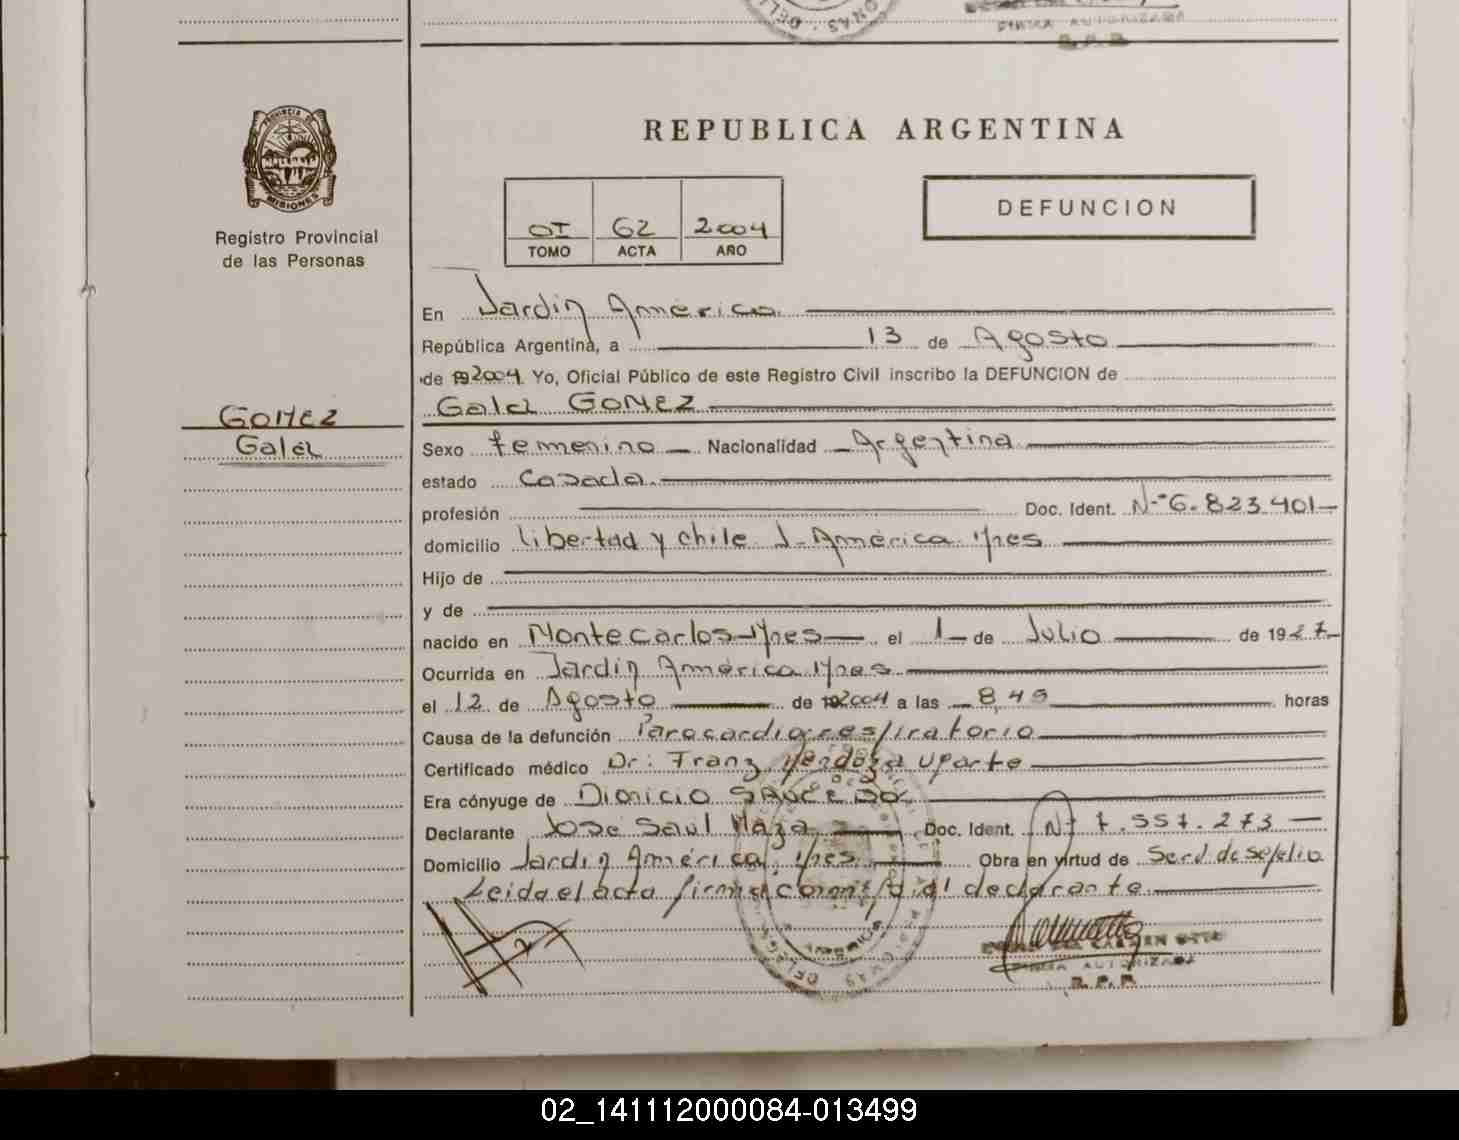 FIRMA AUTORIZADA
R. P. P.
PROVINCIA DE
MISIONES
Registro Provincial
de las Personas
REPUBLICA ARGENTINA
OI 62 2004
TOMO ACTA AÑO
DEFUNCION
En Jardin América
República Argentina, a 13 de Agosto
de 192004. Yo, Oficial Público de este Registro Civil inscribo la DEFUNCION de
Gala GOMEZ
GOMEZ
Gala
Sexo femenino Nacionalidad Argentina
estado Casada
profesión Doc. Ident. Nº 6.823.401
domicilio Libertad y chile J. América Mnes
Hijo de
y de
nacido en Montecarlos-Mnes el 1 de Julio de 1927
Ocurrida en Jardin América Mnes
el 12 de Agosto de 192004 a las 8,45 horas
Causa de la defunción Parocardiorrespiratorio
Certificado médico Dr: Franz Mendoza Uparte
Era cónyuge de Dionicio SAUCEDO
Declarante José Saul Maza Doc. Ident. Nº 7.557.273
Domicilio Jardin América, Mnes Obra en virtud de Serv de sepelio
Leida el acta firma conmigo el declarante
CARMEN
FIRMA AUTORIZADA
R. P. P.
02_141112000084-013499